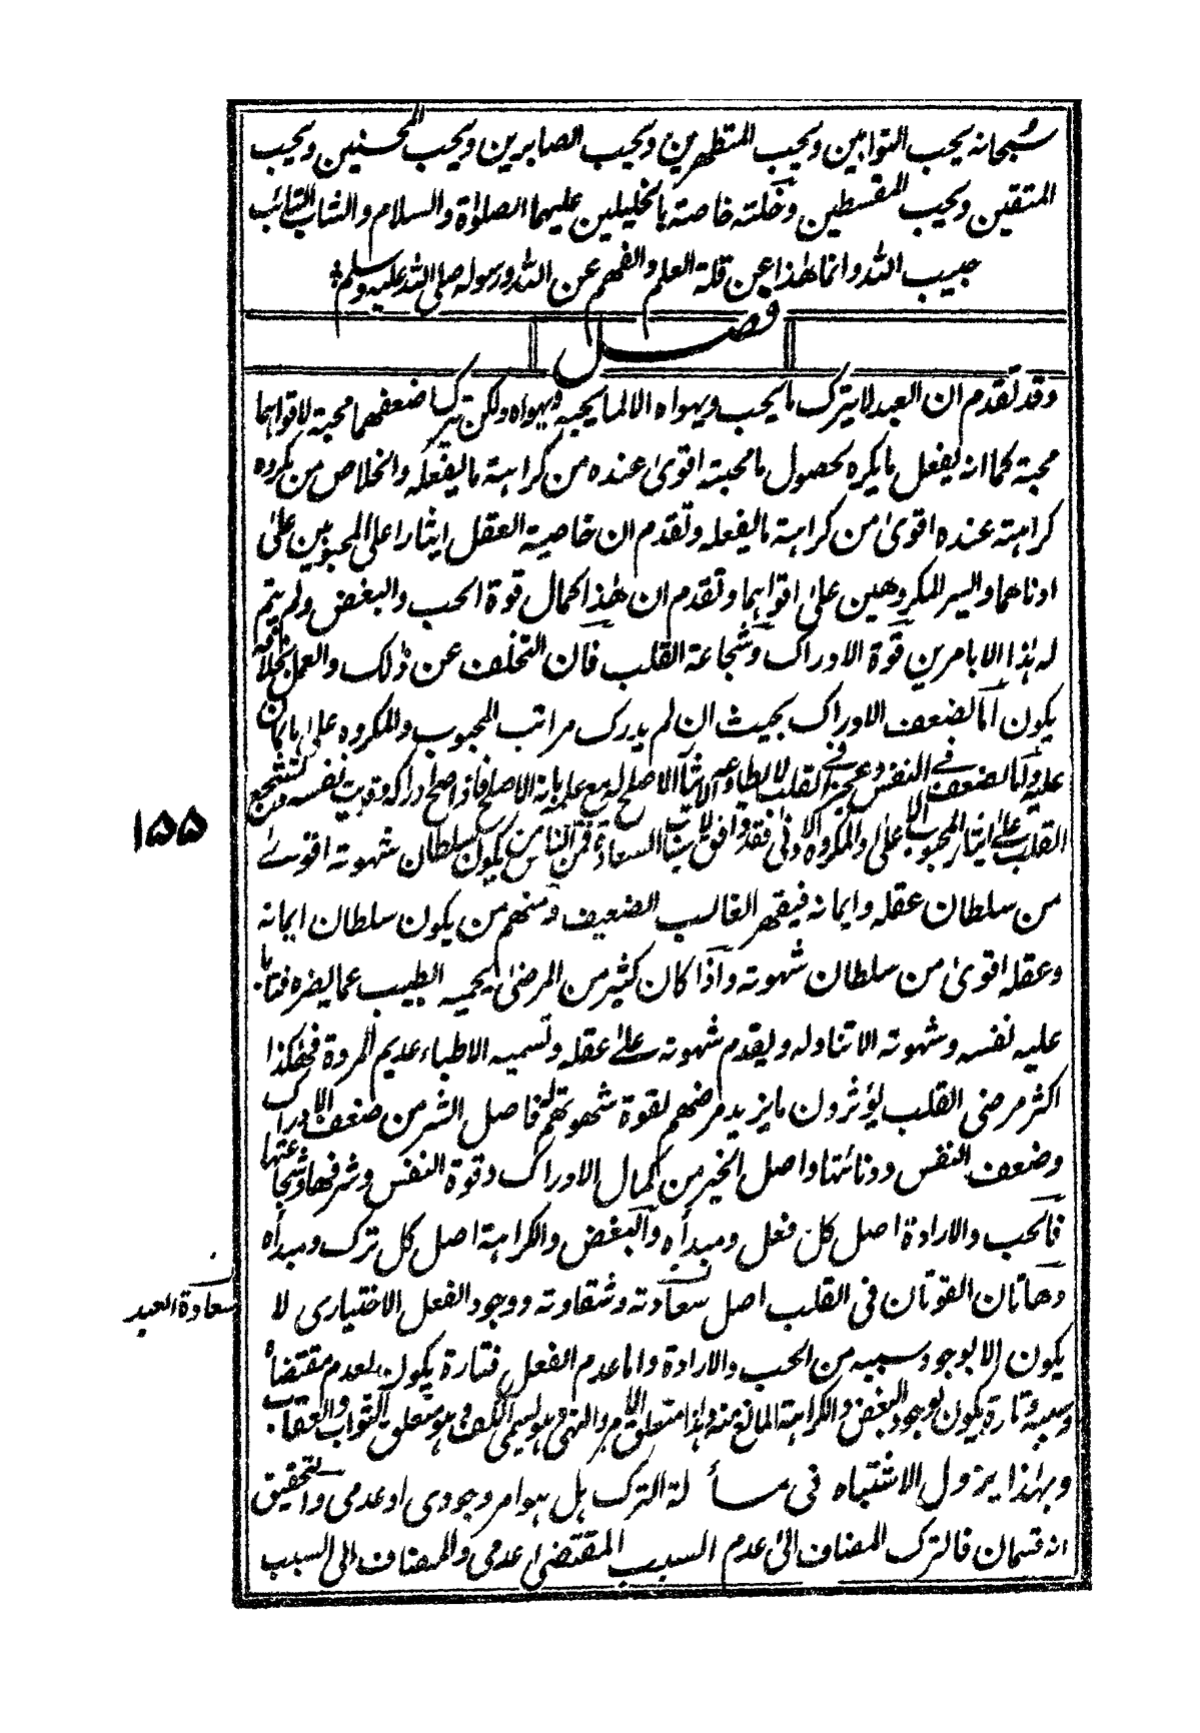 سبحانه يحب التوابين ويحب المتطهرين ويحب الصابرين ويحب المحسنين ويحب
المتقين ويحب المقسطين وخلته خاصة بالخليلين عليهما الصلوٰة والسلام والشاب التائب
حبيب الله وانما هٰذا عن قلة العلم والفهم عن الله ورسوله صلى الله عليه وسلم
فصل
وقد تقدم ان العبد لا يترك ما يحب ويهواه الا لما يحبه ويهواه ولكن يترك اضعفهما محبة لاقواهما
محبة كما انه يفعل ما يكره لحصول ما محبته اقوىٰ عنده من كراهة ما يفعله والخلاص من مكروه
كراهته عنده اقوىٰ من كراهة ما يفعله وتقدم ان خاصية العقل ايثار اعلى المحبوبين علىٰ
ادناهما وايسر المكروهين علىٰ اقواهما وتقدم ان هٰذا لكمال قوة الحب والبغض ولم يتم
له هٰذا الا بامرين قوة الادراك وشجاعة القلب فان التخلف عن ذٰلك والعمل بخلافه
يكون اما لضعف الادراك بحيث ان لم يدرك مراتب المحبوب والمكروه علىٰ ما كان
عليه واما لضعف في النفس وعجز في القلب لا يطاوعه لايثار الاصلح له مع علمه بانه الاصلح فاذا صح ادراكه وقويت نفسه وتشجع
القلب علىٰ ايثار المحبوب الاعلىٰ والمكروه الادنىٰ فقد وافق لاسباب السعادة فمن الناس من يكون سلطان شهوته اقوىٰ
من سلطان عقله وايمانه فيقهر الغالب الضعيف ومنهم من يكون سلطان ايمانه
وعقله اقوىٰ من سلطان شهوته واذا كان كثير من المرضىٰ يحميه الطبيب عما يضره فتابا
عليه نفسه وشهوته الا تناوله ويقدم شهوته علىٰ عقله وتسميه الاطباء عديم المروة فهكذا
اكثر مرضى القلب يؤثرون ما يزيد مرضهم لقوة شهوتهم له فاصل الشر من ضعف الادراك
وضعف النفس ودنائتها واصل الخير من كمال الادراك وقوة النفس وشرفها وشجاعتها
فالحب والارادة اصل كل فعل ومبدأه والبغض والكراهة اصل كل ترك ومبدأه
وهاتان القوتان في القلب اصل سعادته وشقاوته ووجود الفعل الاختياري لا
يكون الا بوجود سببه من الحب والارادة واما عدم الفعل فتارة يكون لعدم مقتضاه
وسببه وتارة يكون لوجود البغض والكراهة المانع منه وهٰذا متعلق الامر والنهي وهو يسمى الكف وهو متعلق الثواب والعقاب
وبهٰذا يزول الاشتباه في مسألة الترك بل هو امر وجودي او عدمي والتحقيق
انه قسمان فالترك المضاف الىٰ عدم السبب المقتضي عدمي والمضاف الى السبب
١٥٥
سعادة العبد